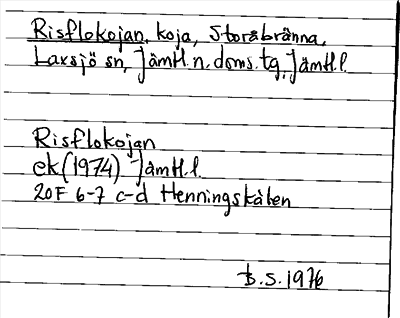 Risflokojan, koja, Storåbränna,
Laxsjö sn, Jämtl. n. doms. tg, Jämtl. l.
Risflokojan
ek (1974) Jämtl. l.
20F 6-7 c-d Henningskälen
B.S. 1976